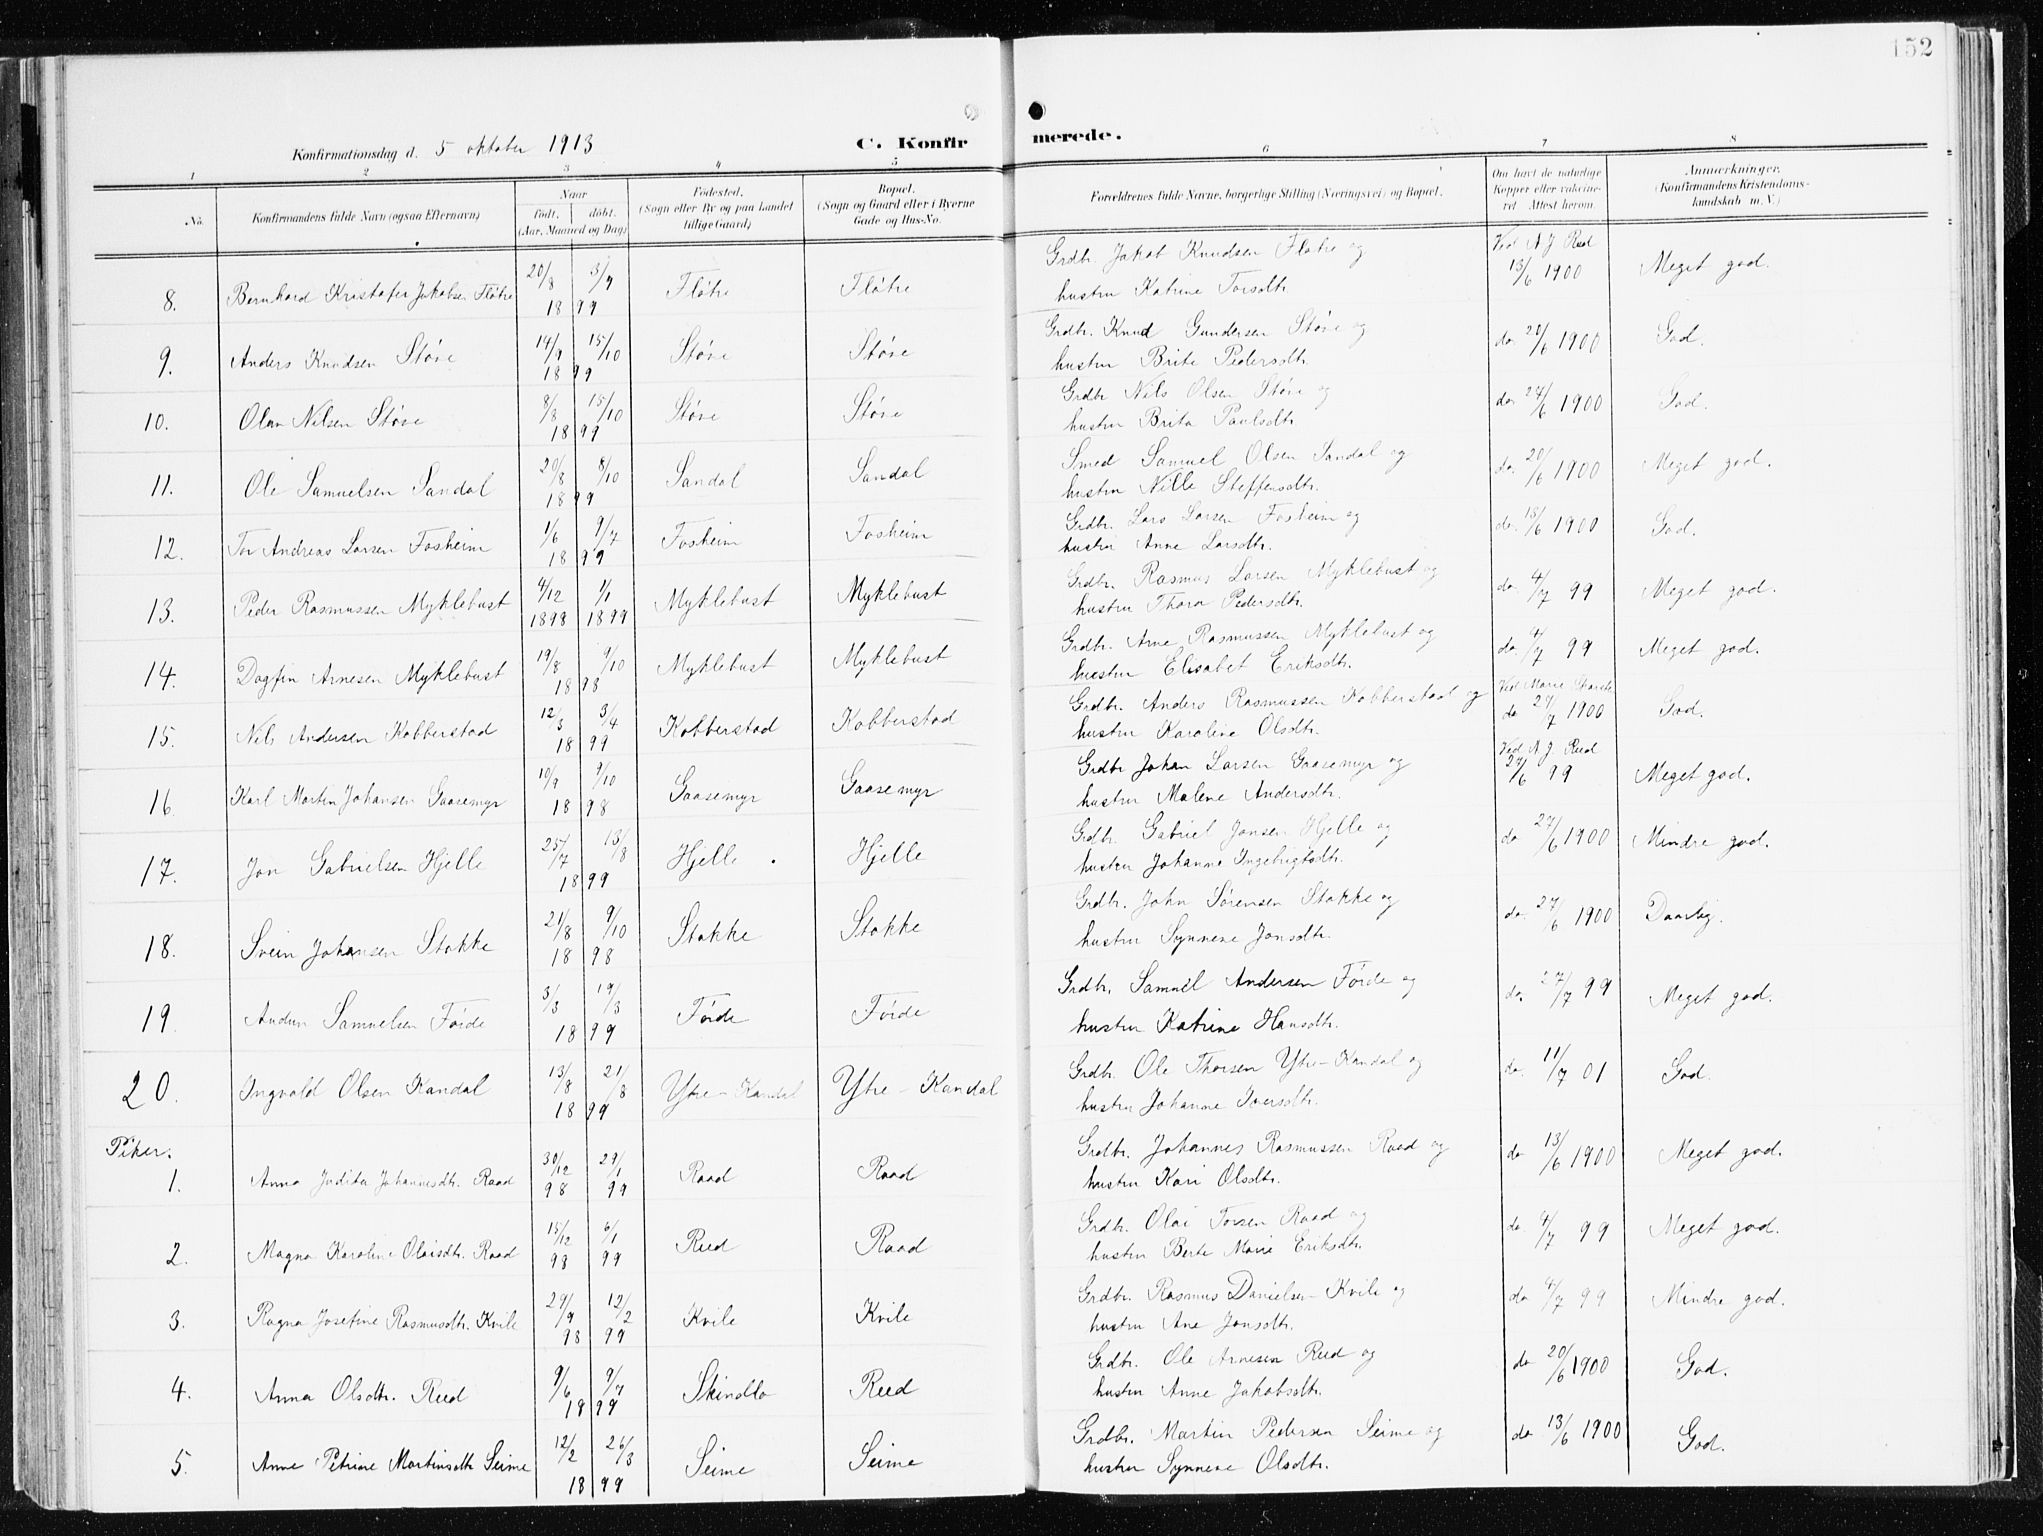 152
Konfirmationsdag d. 5 oktober 1913
C. Konfirmerede.
1 2 3 4 5 6 7 8
No.
Konfirmandens fulde Navn (ogsaa Efternavn)
Naar
født. døbt.
(Aar, Maaned og Dag)
Fødested.
(Sogn eller By og paa Landet
tillige Gaard)
Bopæl.
(Sogn og Gaard eller i Byerne
Gade og Hus-No.
Forældrenes fulde Navne, borgerlige Stilling (Næringsvei) og Bopæl.
Om havt de naturlige
Kopper eller vakcine-
ret. Attest herom.
Anmærkninger.
(Konfirmandens Kristendoms-
kundskab m. V.)
8. Bernhard Kristofer Jakobsen Fløtre 20/8 3/9 1899 Fløtre Fløtre Grdbr. Jakob Knudsen Fløtre og
hustru Katrine Torsdtr. Ved A J. Reed 13/6 1900 Meget god.
9. Anders Knudsen Støve 14/9 15/10 1899 Støve Støve Grdbr. Knud Gundersen Støve og
hustru Brite Pedersdtr. do 20/6 1900 God.
10. Olav Nilsen Støve 8/8 15/10 1899 Støve Støve Grdbr Nils Olsen Støve og
hustru Brita Paulsdtr. do 27/6 1900 God.
11. Ole Samuelsen Sandal 20/8 8/10 1899 Sandal Sandal Smed Samuel Olsen Sandal og
hustru Nille Steffensdtr. do. 20/6 1900 Meget god.
12. Tor Andreas Larsen Fosheim 1/6 9/7 1899 Fosheim Fosheim Grdbr. Lars Larsen Fosheim og
hustru Anne Larsdtr. do. 15/6 1900 God.
13. Peder Rasmussen Myklebust 4/12 1898 1/1 1899 Myklebust Myklebust Grdbr. Rasmus Larsen Myklebust og
hustru Thora Pedersdtr. do 4/7 99 Meget god.
14. Dagfin Arnesen Myklebust 19/8 9/10 1898 Myklebust Myklebust Grdbr. Arne Rasmussen Myklebust og
hustru Elisabet Eriksdtr. do 4/7 99 Meget god.
15. Nils Andersen Kobberstad 12/3 3/4 1899 Kobberstad Kobberstad Grdbr. Anders Rasmussen Kobberstad og
hustru Karoline Olsdtr. Ved Marie do 27/7 1900 God.
16. Karl Martin Johansen Gaasemyr 10/9 9/10 1898 Gaasemyr Gaasemyr Grdbr Johan Larsen Gaasemyr og
hustru Malene Andersdtr. Ved A J. Reed 27/6 99 Meget god.
17. Jon Gabrielsen Hjelle 25/7 13/8 1899 Hjelle . Hjelle Grdbr. Gabriel Jonsen Hjelle og
hustru Johanne Ingebrigtsdtr. do 27/6 1900 Mindre god.
18. Svein Johansen Stokke 21/8 9/10 1898 Stokke Stokke Grdbr. John Sørensen Stokke og
hustru Synneve Jonsdtr. do. 27/6 1900 Daarlig.
19. Audun Samuelsen Førde 3/3 19/3 1899 Førde Førde Grdbr. Samuel Andersen Førde og
hustru Katrine Hansdtr. do. 27/7 99 Meget god.
20. Ingvald Olsen Kandal 13/8 21/8 1899 Ytre-Kandal Ytre-Kandal Grdbr. Ole Thorsen Ytre-Kandal og
hustru Johanne Iversdtr. do. 11/7 01 God.
Piker.
1. Anna Judita Johannesdtr. Raad 30/12 98 29/1 99 Raad Raad Grdbr. Johannes Rasmussen Raad og
hustru Kari Olsdtr. do 13/6 1900 Meget god.
2. Magna Karoline Olaisdtr. Raad 15/12 98 6/1 99 Reed Raad Grdbr. Olai Torsen Raad og
hustru Berte Marie Eriksdtr. do. 4/7 99 Meget god.
3. Ragna Josefine Rasmusdtr. Kvile 29/9 98 12/2 99 Kvile Kvile Grdbr. Rasmus Danielsen Kvile og
hustru Ane Jonsdtr. do 4/7 99 Mindre god.
4. Anna Olsdtr. Reed 9/6 9/7 1899 Skindlo Reed Grdbr. Ole Arnesen Reed og
hustru Anne Jakobsdtr. do 20/6 1900 God.
5. Anne Petrine Martinsdtr Seime 12/2 26/3 1899 Seime Seime Grdbr. Martin Pedersen Seime og
hustru Synneve Olsdtr. do 13/6 1900 God.